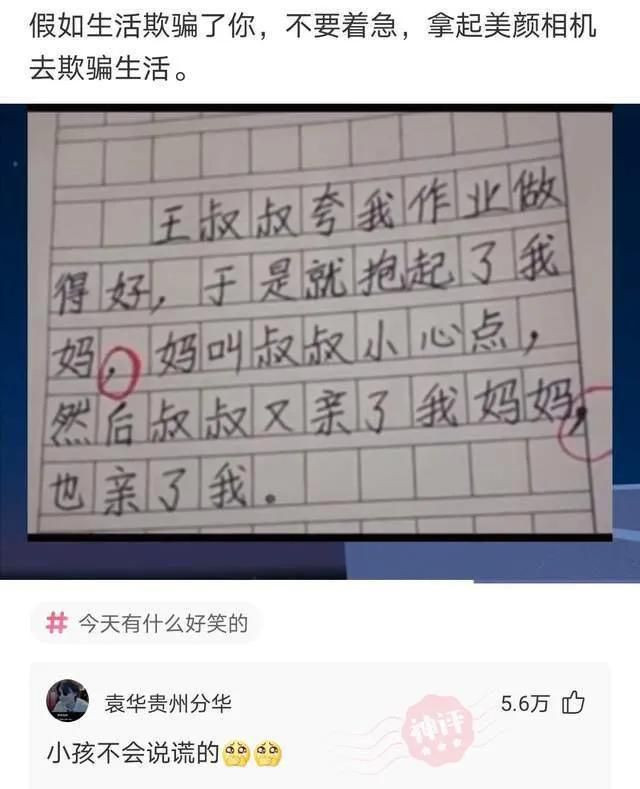 假如生活欺骗了你，不要着急，拿起美颜相机
去欺骗生活。
王叔叔夸我作业做
得好，于是就抱起了我
妈，妈叫叔叔小心点，
然后叔叔又亲了我妈妈，
也亲了我。
# 今天有什么好笑的
袁华贵州分华
5.6万
神评
小孩不会说谎的